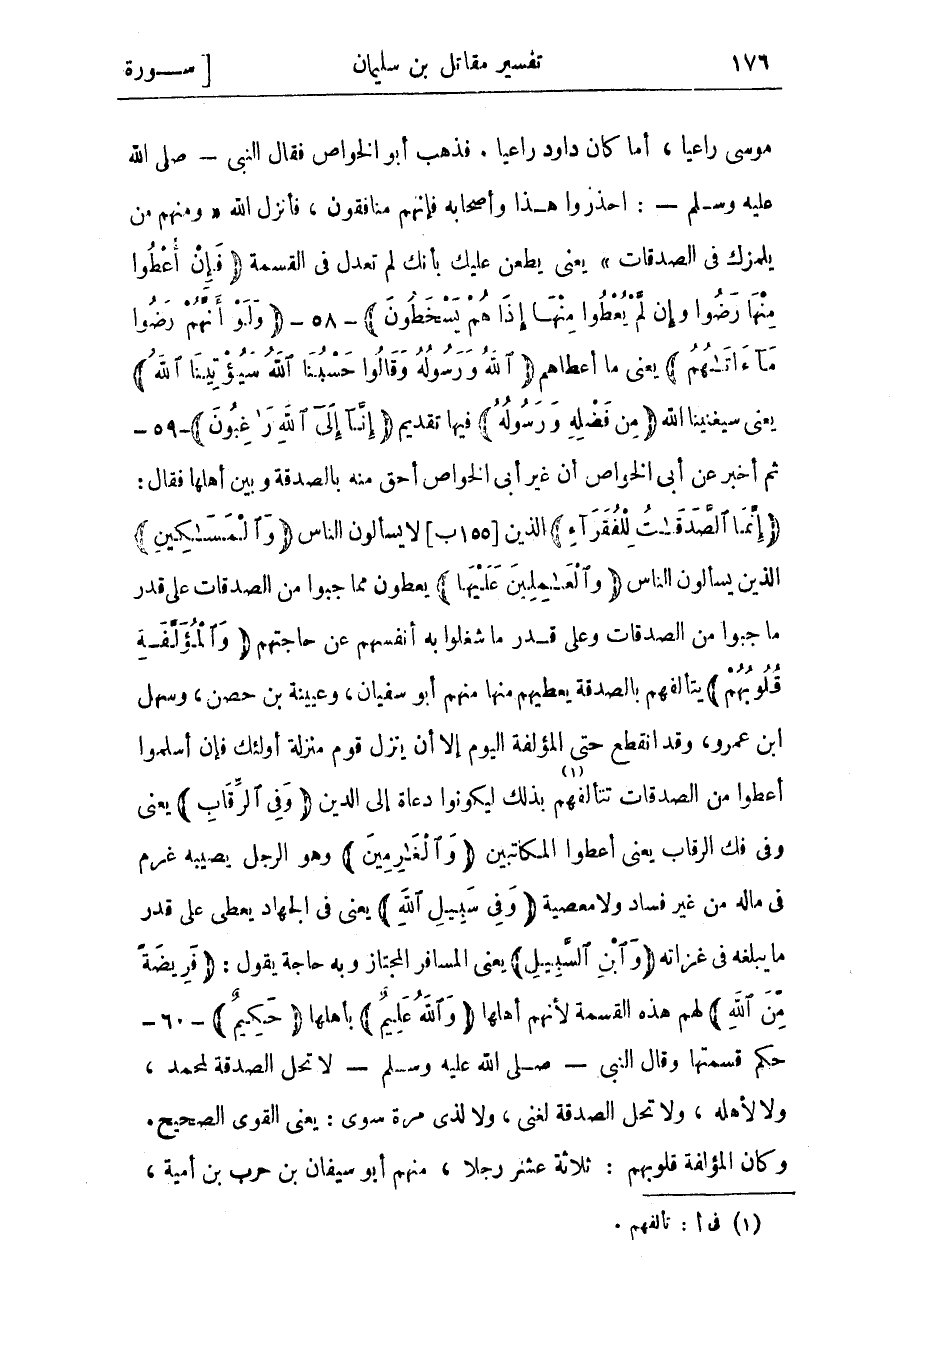 ١٧٦ تفسير مقاتل بن سليمان [ سـورة
موسى راعيا ، أما كان داود راعيا . فذهب أبو الخواص فقال النبى — صلى الله
عليه وسـلم — : احذروا هـذا وأصحابه فإنهم منافقون ، فأنزل الله « ومنهم من
يلمزك فى الصدقات » يعنى يطعن عليك بأنك لم تعدل فى القسمة ﴿ فَإِنْ أُعْطُوا
مِنْهَا رَضُوا وإِن لَّمْ يُعْطُوا مِنْهَـا إِذَا هُمْ يَسْخَطُونَ ﴾ - ٥٨ - ﴿ وَلَوْ أَنَّهُمْ رَضُوا
مَآ ءَاتَـٰهُمُ ﴾ يعنى ما أعطاهم ﴿ ٱللَّهُ وَرَسُولُهُ وَقَالُوا حَسْبُنَا ٱللَّهُ سَيُؤْتِينَا ٱللَّهُ ﴾
يعنى سيغنينا الله ﴿ مِن فَضْلِهِ وَرَسُولُهُ ﴾ فيها تقديم ﴿ إِنَّـآ إِلَى ٱللَّهِ رَٰغِبُونَ ﴾ - ٥٩ -
ثم أخبر عن أبى الخواص أن غير أبى الخواص أحق منه بالصدقة وبين أهلها فقال :
﴿ إِنَّمَا ٱلصَّدَقَـٰتُ لِلْفُقَرَآءِ ﴾ الذين [ ١٥٥ب ] لا يسألون الناس ﴿ وَٱلْمَسَـٰكِينِ ﴾
الذين يسألون الناس ﴿ وٱلْعَـٰمِلِينَ عَلَيْهَا ﴾ يعطون مما جبوا من الصدقات على قدر
ما جبوا من الصدقات وعلى قـدر ما شغلوا به أنفسهم عن حاجتهم ﴿ وَٱلْمُؤَلَّفَـةِ
قُلُوبُهُمْ ﴾ يتألفهم بالصدقة يعطيهم منها منهم أبو سفيان ، وعيينة بن حصن ، وسهل
ابن عمرو ، وقد انقطع حتى المؤلفة اليوم إلا أن ينزل قوم منزلة أولئك فإن أسلموا
أعطوا من الصدقات تتألفهم (١) بذلك ليكونوا دعاة إلى الدين ﴿ وَفِى ٱلرِّقَابِ ﴾ يعنى
وفى فك الرقاب يعنى أعطوا المكاتبين ﴿ وَٱلْغَـٰرِمِينَ ﴾ وهو الرجل يصيبه غرم
فى ماله من غير فساد ولا معصية ﴿ وَفِى سَبِيـلِ ٱللَّهِ ﴾ يعنى فى الجهاد يعطى على قدر
ما يبلغه فى غزاته ﴿ وَٱبْنِ ٱلسَّبِيـلِ ﴾ يعنى المسافر المجتاز وبه حاجة يقول : ﴿ فَرِيضَةً
مِّنَ ٱللَّهِ ﴾ لهم هذه القسمة لأنهم أهلها ﴿ وَٱللَّهُ عَلِيمٌ ﴾ بأهلها ﴿ حَكِيمٌ ﴾ - ٦٠ -
حكم قسمتها وقال النبى — صـلى الله عليه وسـلم — لا تحل الصدقة لمحمد ،
ولا لأهله ، ولا تحل الصدقة لغنى ، ولا لذى مرة سوى : يعنى القوى الصحيح .
وكان المؤلفة قلوبهم : ثلاثة عشر رجلا ، منهم أبو سيفان بن حرب بن أمية ،
(١) فى أ : تألفهم .